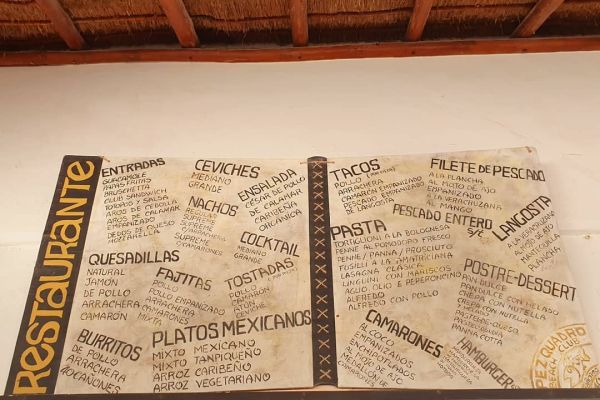 RESTAURANTE
ENTRADAS
GUACAMOLE
PAPAS FRITAS
BRUSCHETTA
CLUB SANDWICH
TOTOPOS Y SALSA
AROS DE CEBOLLA
AROS DE CALAMAR
EMPANIZADO
DEDOS DE QUESO
MOZZARELLA
QUESADILLAS
NATURAL
JAMÓN
DE POLLO
ARRACHERA
CAMARÓN
BURRITOS
DE POLLO
ARRACHERA
CEVICHES
MEDIANO
GRANDE
NACHOS
REGULAR
SUPREME
SUPREME
C/CAMARONES
FAJITAS
POLLO
POLLO EMPANIZADO
ARRACHERA
CAMARONES
MIXTA
PLATOS MEXICANOS
MIXTO MEXICANO
MIXTO TANPIQUEÑO
ARROZ CARIBEÑO
ARROZ VEGETARIANO
ENSALADA
CESAR DE POLLO
DE CALAMAR
CARIBEÑA
ORGANICA
COCKTAIL
MEDIANO
GRANDE
TOSTADAS
POLLO
CAMARÓN
ATÚN
CEVICHE
TACOS
POLLO
ARRACHERA
CAMARÓN EMPANIZADO
PESCADO EMPANIZADO
DE LANGOSTA
PESCADO ENTERO
S/C
PASTA
TORTIGLIONI A LA BOLOGNESA
PENNE AL POMODORO FRESCO
PENNE/PANNA/PROSCIUTO
FUSILLI A LA AMATRICIANA
LASAGNA CLASICA
LINGUINI CON MARISCOS
AGLIO OLIO E PEPERONCINO
ALFREDO
ALFREDO CON POLLO
CAMARONES
AL COCO
EMPANIZADOS
ENCHIPOCLADOS
AL MOJO DE AJO
MEDALLON DE
CAMARONES
FILETE DE PESCADO
A LA PLANCHA
AL MOJO DE AJO
EMPANIZADO
A LA VERACRUZANA
AL MANGO
LANGOSTA
A LA VERACRUZANA
MOJO DE AJO
MANTEQUILLA
PLANCHA
POSTRE-DESSERT
PAN DULCE
PAN DULCE CON HELADO
CREPA CON NUTELLA
CREPA CON HELADO
PASTEL QUESO
PANNA COTTA
HAMBURGUER
PEZ QUADRO
BEACH CLUB